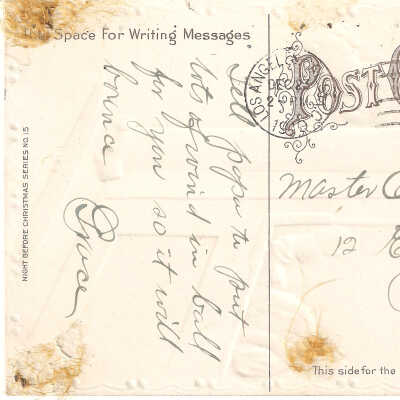 This Space For Writing Messages
Tell papa to put
lots of wind in ball
for you so it will
bounce
Grace
NIGHT BEFORE CHRISTMAS SERIES NO. 15
LOS ANGEL
DEC
2
19
POST
Master
12
This side for the